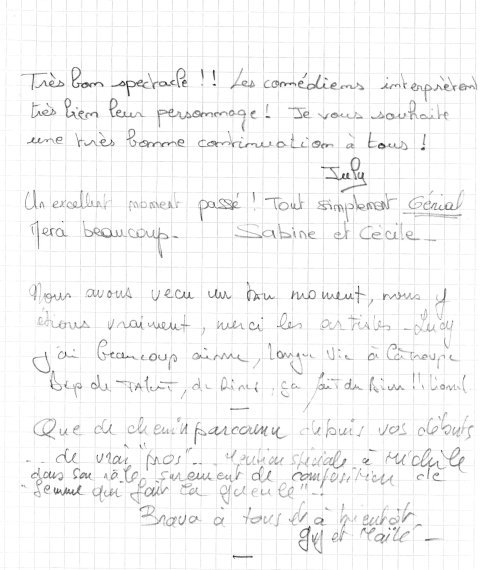 Très bon spectacle !! Les comédiens interprètent
très bien leur personnage ! Je vous souhaite
une très bonne continuation à tous !
July
Un excellent moment passé ! Tout simplement Génial
Merci beaucoup. Sabine et Cécile
Nous avons vecu un bon moment, nous y
étions vraiment, merci les artistes - Lucy
j'ai beaucoup aimé, longue vie à la troupe
de Talent, de Rires, ça fait du bien !! Lionel
Que de chemin parcouru depuis vos débuts
... de vrai "pros" ... Mention spéciale à Michèle
dans son rôle, surement de composition de
"femme qui fait la gueule" ...
Bravo à tous et à bientôt
Guy et Maïté